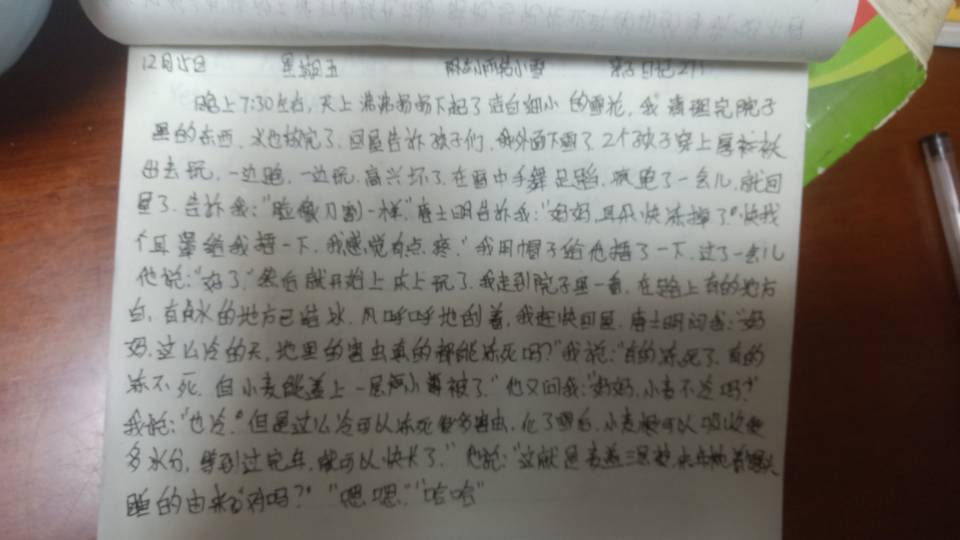 12月15日 星期五 雨加小雨转小雪 亲子日记
晚上7:30左右，天上沸沸扬扬下起了洁白细小的雪花，我清理完院子
里的东西，水也放完了，回屋告诉孩子们，外面下雪了，2个孩子穿上厚棉袄
出去玩，一边跑，一边玩，高兴坏了，在雪中手舞足蹈，疯跑了一会儿，就回
屋了，告诉我："脸像刀割一样"唐士明告诉我："妈妈，耳朵快冻掉了，快找
个耳罩给我捂一下，我感觉有点疼。"我用帽子给他捂了一下，过了一会儿
他说："好了。"然后就开始上床上玩了，我走到院子里一看，在路上有的地方
白，有点水的地方已结冰，风呼呼地刮着，我赶快回屋，唐士明问我："妈
妈，这么冷的天，地里的害虫真的都能冻死吗？"我说："有的冻死了，有的
冻不死，但小麦能盖上一层小薄被了。"他又问我："妈妈，小麦不冷吗？"
我说："也冷。但是这么冷可以冻死很多害虫，化了雪后，小麦还可以吸收更
多水分，等到过完年，就可以快长了。"他说："这就是麦盖三层被，来年枕着馒头
睡的由来，对吗？""嗯嗯""哈哈"